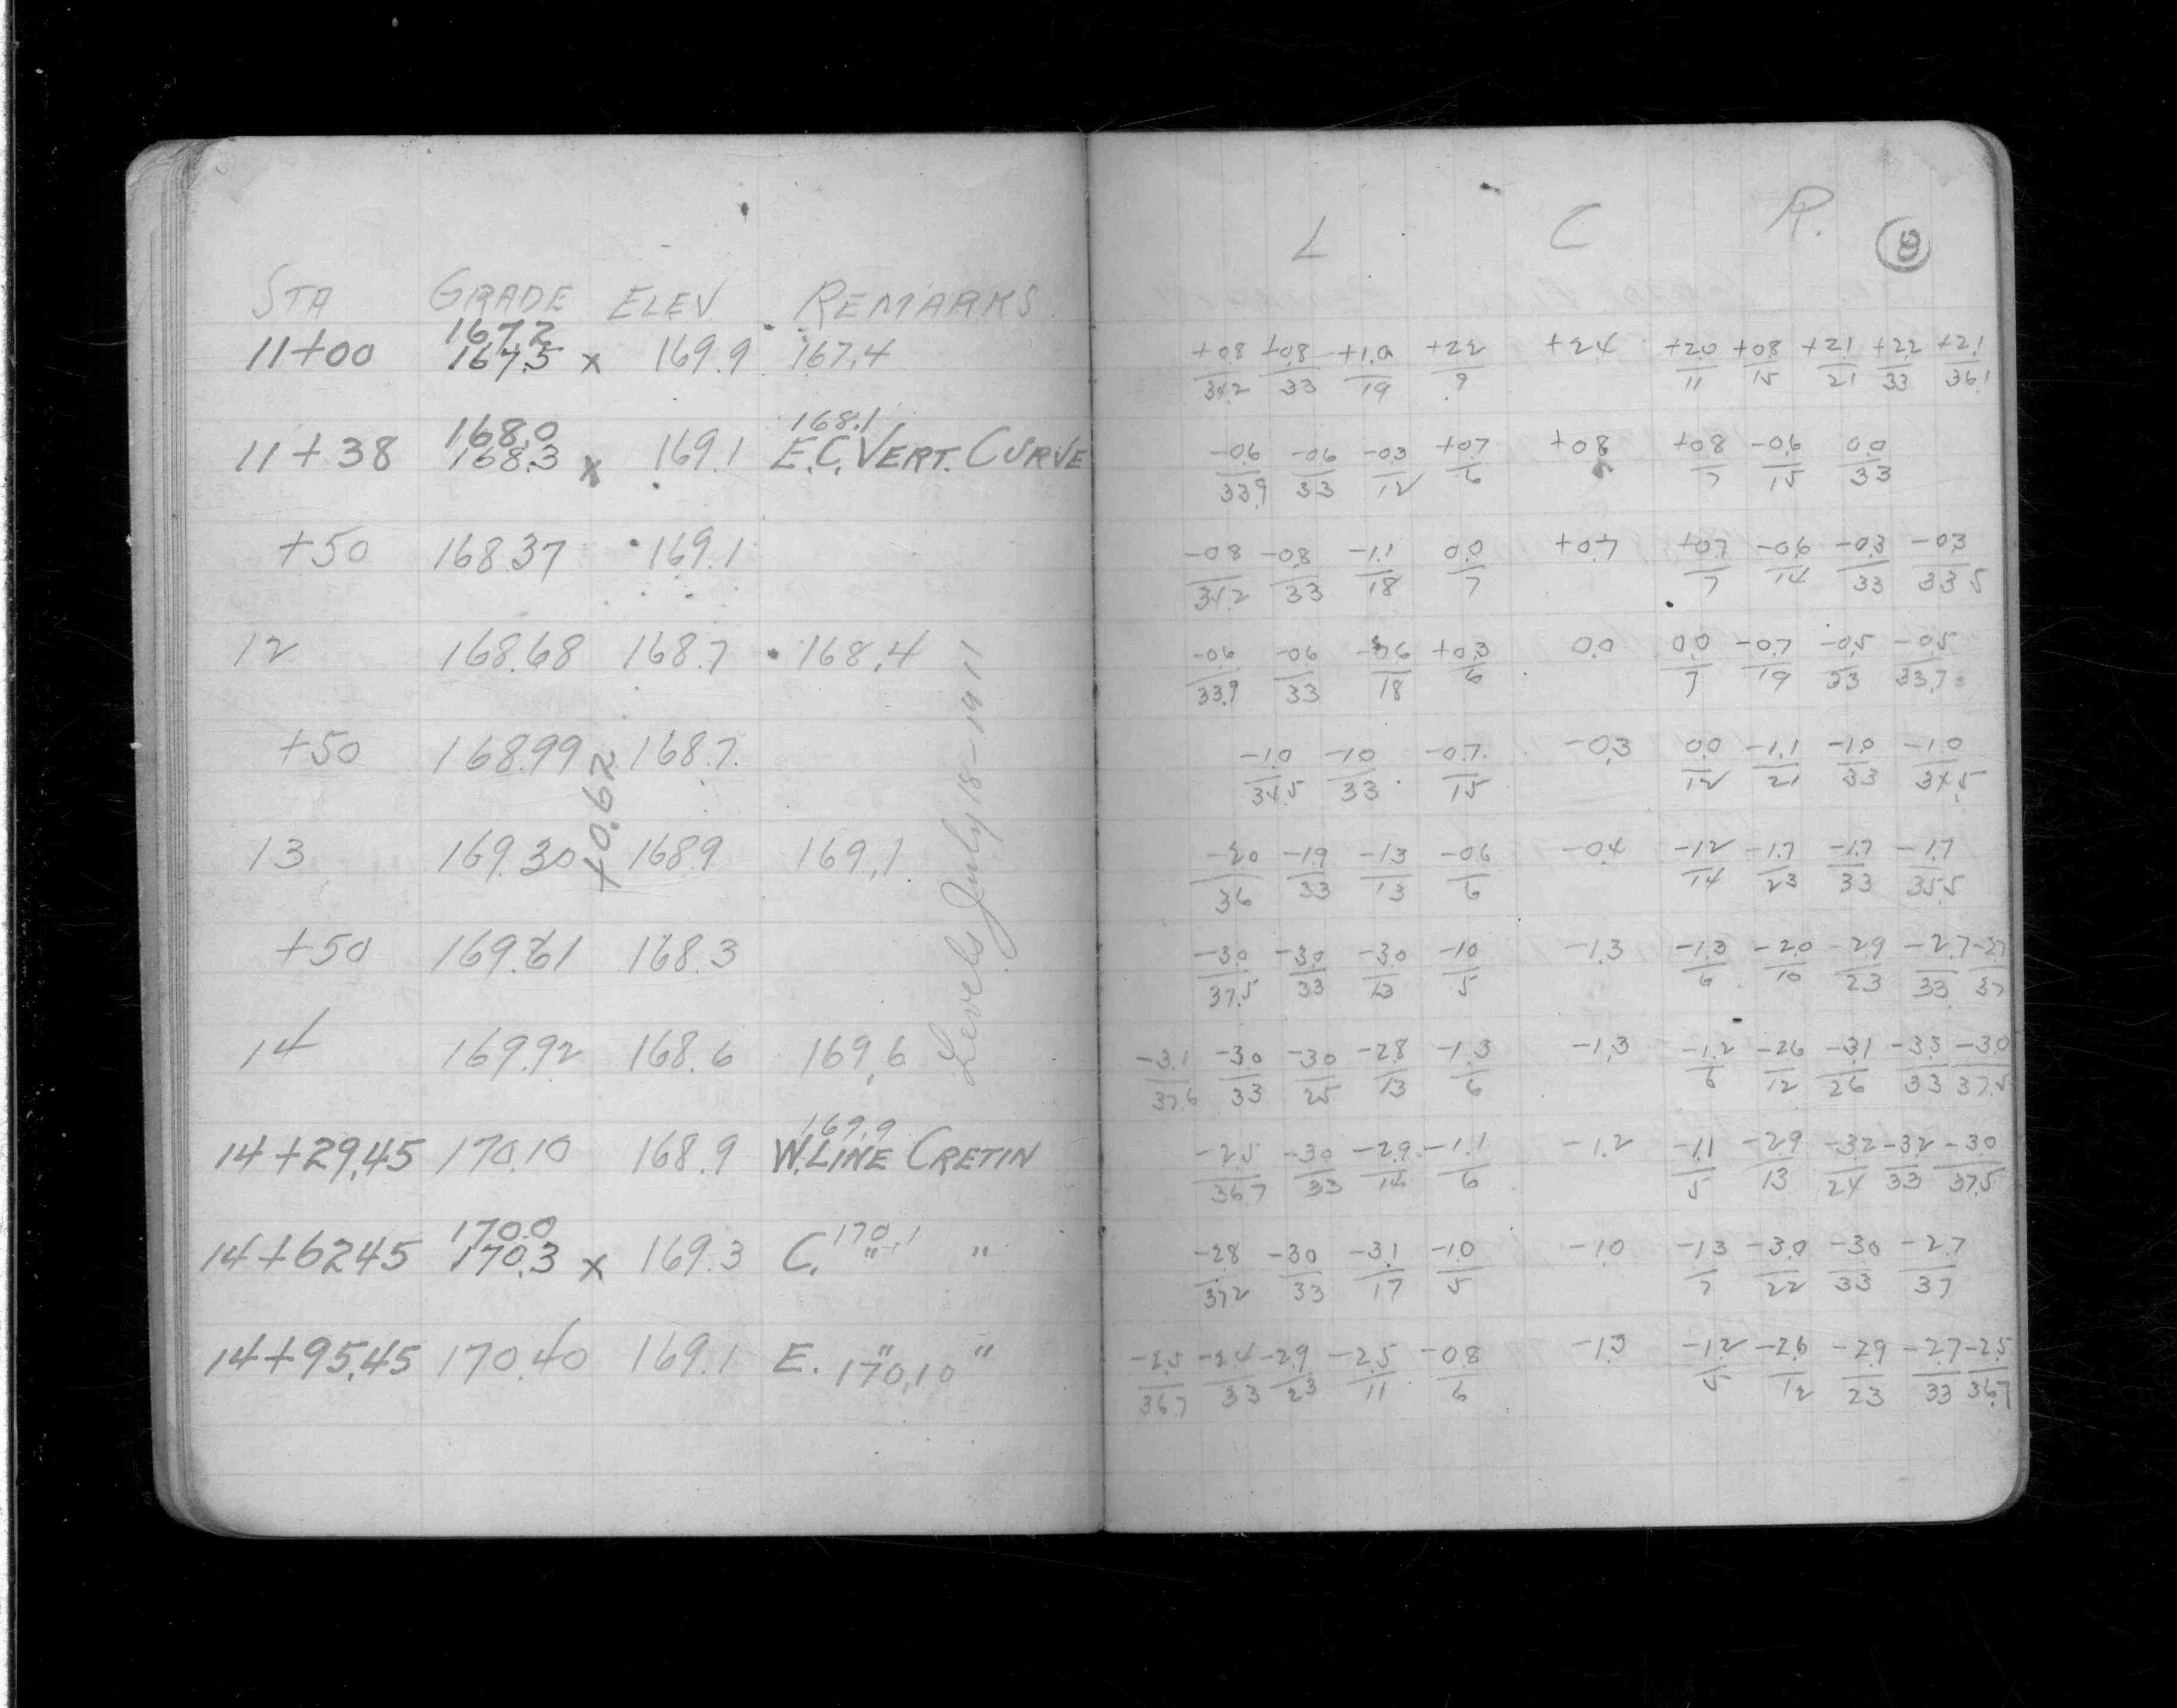 L C R. 8
STA GRADE ELEV REMARKS
167.2
11+00 167.5 x 169.9 167.4
+0.8 +0.8 +1.0 +2.2 +2.4 +2.0 +0.8 +2.1 +2.2 +2.1
34.2 33 19 9 11 15 21 33 36.1
168.0 168.1
11+38 168.3 x 169.1 E.C. VERT. CURVE
-0.6 -0.6 -0.3 +0.7 +0.8 +0.8 -0.6 0.0
33.9 33 12 6 7 15 33
+50 168.37 169.1
-0.8 -0.8 -1.1 0.0 +0.7 +0.7 -0.6 -0.3 -0.3
34.2 33 18 7 7 14 33 33.5
12 168.68 168.7 168.4
-0.6 -0.6 -0.6 +0.3 0.0 0.0 -0.7 -0.5 -0.5
33.9 33 18 6 7 19 33 33.7
+50 168.99 168.7
-1.0 -1.0 -0.7 -0.3 0.0 -1.1 -1.0 -1.0
34.5 33 15 12 21 33 34.5
+0.62
13 169.30 168.9 169.1
-2.0 -1.9 -1.3 -0.6 -0.4 -1.2 -1.7 -1.7 -1.7
36 33 13 6 14 23 33 35.5
+50 169.61 168.3
-3.0 -3.0 -3.0 -1.0 -1.3 -1.3 -2.0 -2.9 -2.7 -2.7
37.5 33 13 5 6 10 23 33 37
Levels July 18-1911
14 169.92 168.6 169.6
-3.1 -3.0 -3.0 -2.8 -1.3 -1.3 -1.2 -2.6 -3.1 -3.3 -3.0
37.6 33 25 13 6 6 12 26 33 37.5
169.9
14+29.45 170.10 168.9 W. LINE CRETIN
-2.5 -3.0 -2.9 -1.1 -1.2 -1.1 -2.9 -3.2 -3.2 -3.0
36.7 33 14 6 5 13 24 33 37.5
170.0 170.1
14+62.45 170.3 x 169.3 C. " "
-2.8 -3.0 -3.1 -1.0 -1.0 -1.3 -3.0 -3.0 -2.7
37.2 33 17 5 7 22 33 37
14+95.45 170.40 169.1 E. " "
170.10
-2.5 -2.4 -2.9 -2.5 -0.8 -1.3 -1.2 -2.6 -2.9 -2.7 -2.5
36.7 33 23 11 6 5 12 23 33 36.7